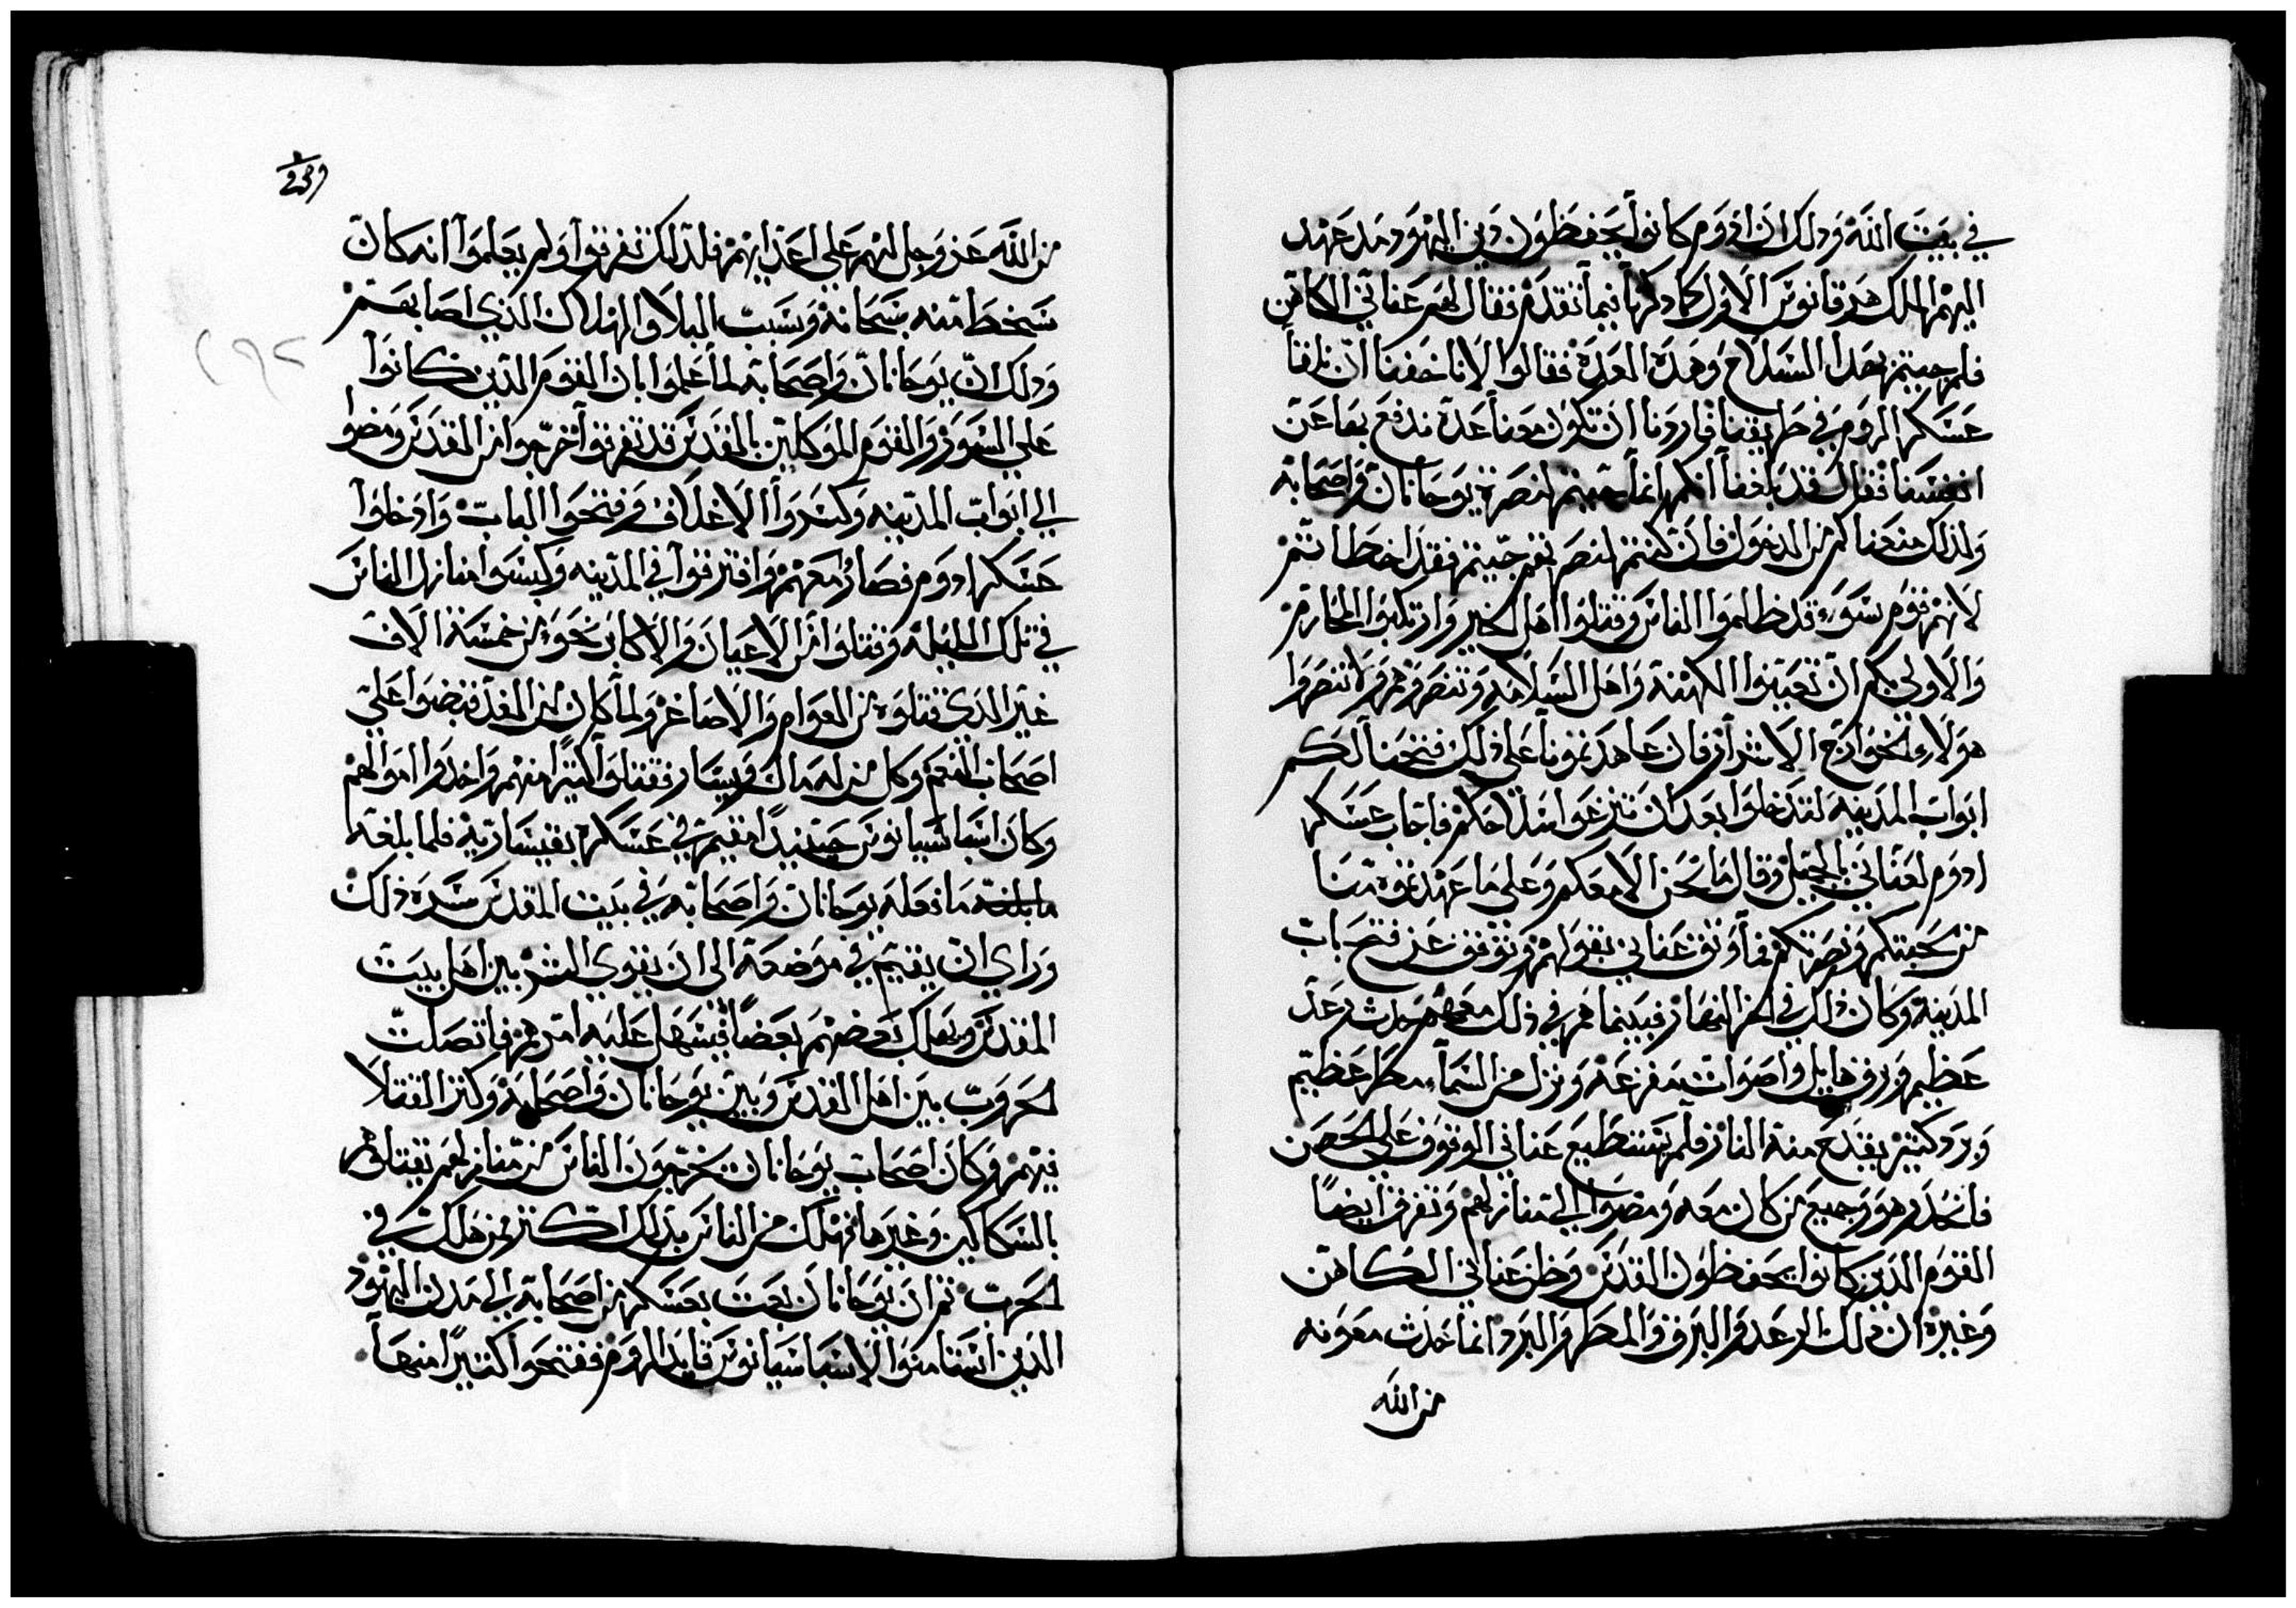 في بيت الله وذلك ان ادوم كانوا يحفظون دين اليهود مذ عهد
اليهم الملك هرقانوس الاول كما ذكرنا فيما تقدم فقال لهم عناني الكاهن
فلم جيتم بهدا السلاح وهذه العدة فقالوا لاننا خفنا ان تلقنا
عسكر الروم في طريقنا فاردنا ان تكون معنا عدة ندفع بها عن
انفسنا فقال قد بلغنا انكم انما جيتم لنصرة يوحانان واصحابه
ولذلك منعناكم من الدخول فان كنتم لنصرتهم جيتم فقد اخطاتم
لانهم قوم سوء قد ظلموا الناس وقتلوا اهل الخير وارتكبوا المحارم
والاولى بكم ان تعينوا الكهنة واهل السلامه وتنصروهم ولا تنصروا
هولاء الخوارج الاشرار فان عاهدتمونا على ذلك فتحنا لكم
ابواب المدينه لتدخلوا بعد ان تنزعوا سلاحكم فاجاب عسكر
ادوم لعناني بالجميل وقال ما نحن الا معكم وعلى ما عهدتموه منا
من محبتكم ونصرتكم فاوثق عناني بقولهم وتوقف عن فتح باب
المدينة وكان ذلك في اخر النهار فبينما هم في ذلك معهم حدث رعد
عظيم وبروق هايل واصوات مفزعة ونزل من السماء مطر عظيم
وبرد كثير يقدح منه النار فلم يستطيع عناني الوقوف على الحصن
فانحدر هو وجميع من كان معه ومضوا الى منازلهم وتفرق ايضا
القوم الذين كانوا يحفظون القدس وظن عناني الكاهن
وغيره ان ذلك الرعد والبرق والمطر والبرد انما حدث معونه
من الله
٢٣٩
من الله عز وجل لهم على اعدايهم فلذلك تفرقوا ولم يعلموا انه كان
سخطا منه سبحانه وسبب البلا والهلاك الذي اصابهم
وذلك ان يوحانان واصحابه لما علموا بان القوم الذين كانوا
على السور والقوم الموكلين بالقدس قد تفرقوا خرجوا من القدس ومضوا
الى ابواب المدينه وكسروا الاغلاق وفتحوا الباب وادخلوا
عسكر ادوم فصار معهم وافترقوا في المدينه وكبسوا منازل الناس
في تلك الليلة وقتلوا من الاعيان والاكابر نحو من خمسة الاف
غير الذي قتلوه من العوام والاصاغر ولما كان من الغد قبضوا على
اصحاب النعم وكل من له مال ويسار فقتلوا كثيرا منهم واخذوا اموالهم
وكان اسباسيانوس حينيذ مقيم في عسكره بقيسارية فلما بلغه
ما بلغه ما فعله يوحانان واصحابه في بيت المقدس سره ذلك
وراى ان يقيم في موضعه الى ان يقوى الشر بين اهل بيت
المقدس ويهلك بعضهم بعضا فيسهل عليه امرهم فاتصلت
الحروب بين اهل القدس وبين يوحانان واصحابه وكثر القتلا
فيهم وكان اصحاب يوحانان يخرجون الناس من منازلهم يقتلوهم
بالسكاكين وغيرها فهلك من الناس بذلك اكثر ممن هلك في
الحرب ثم ان يوحانان بعث بعسكر من اصحابه الى مدن اليهود
الذين استامنوا لاسباسيانوس قايد الروم ففتحوا كثيرا منها